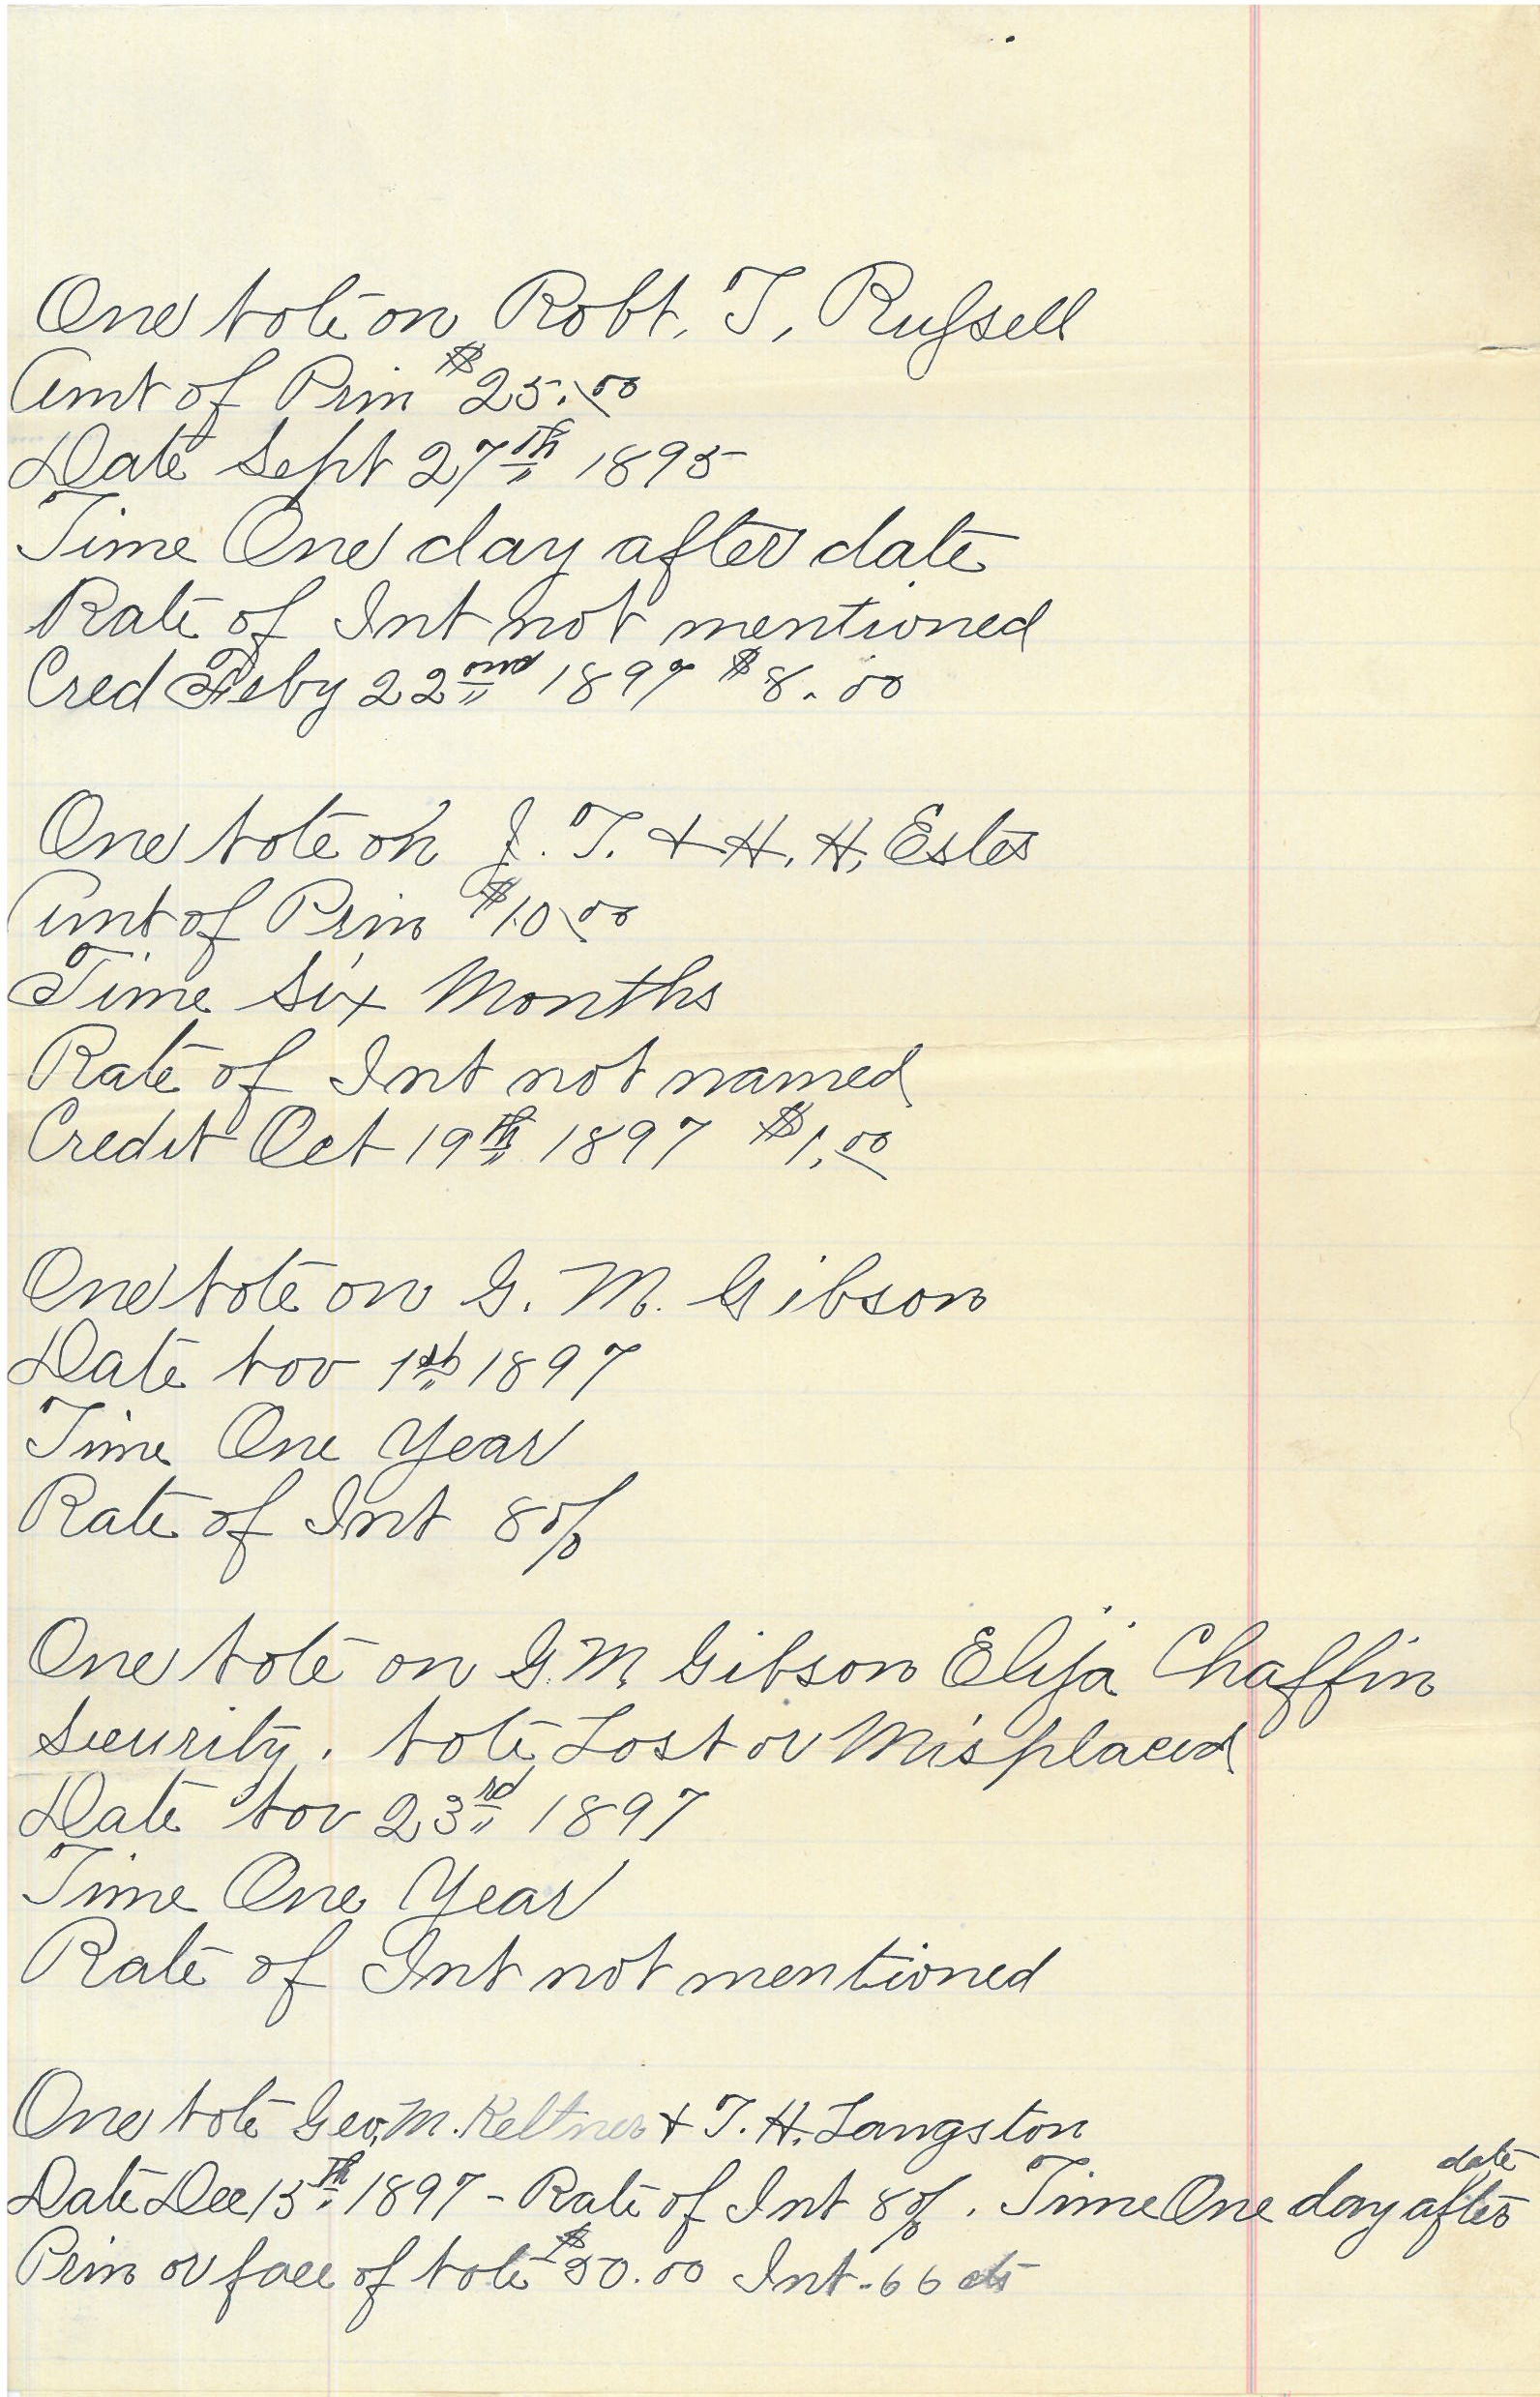 One Note on Robt. T. Russell
Amt of Prin $25.00
Date Sept 27th 1895
Time One day after date
Rate of Int not mentioned
Cred Feby 22nd 1897 $8.00
One Note on J. T. & H. H. Estes
Amt of Prin $10.00
Time Six Months
Rate of Int not named
Credit Oct 19th 1897 $1.00
One Note on G. M. Gibson
Date Nov 1st 1897
Time One Year
Rate of Int 8%
One Note on G. M. Gibson Elija Chaffin
Security. Note Lost or Misplaced
Date Nov 23rd 1897
Time One Year
Rate of Int not mentioned
One Note Geo. M. Keltner & T. H. Langston
Date Dec 15th 1897 - Rate of Int 8%. Time One day after date
Prin or face of Note $50.00 Int - 66 cts